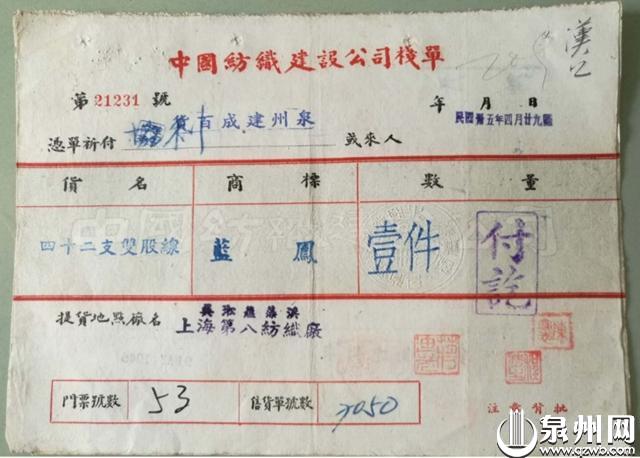 漢口
中國紡織建設公司棧單
第21231號
年 月 日
民國卅五年四月廿九
憑單祈付
泉州建成百貨
或來人
貨名 商標 數量
四十二支雙股線 藍鳳 壹件
付訖
提貨地點廠名
吳淞蘊藻浜
上海第八紡織廠
門票號數 53 售貨單號數 7050
注意背批
泉州网
www.qzwb.com